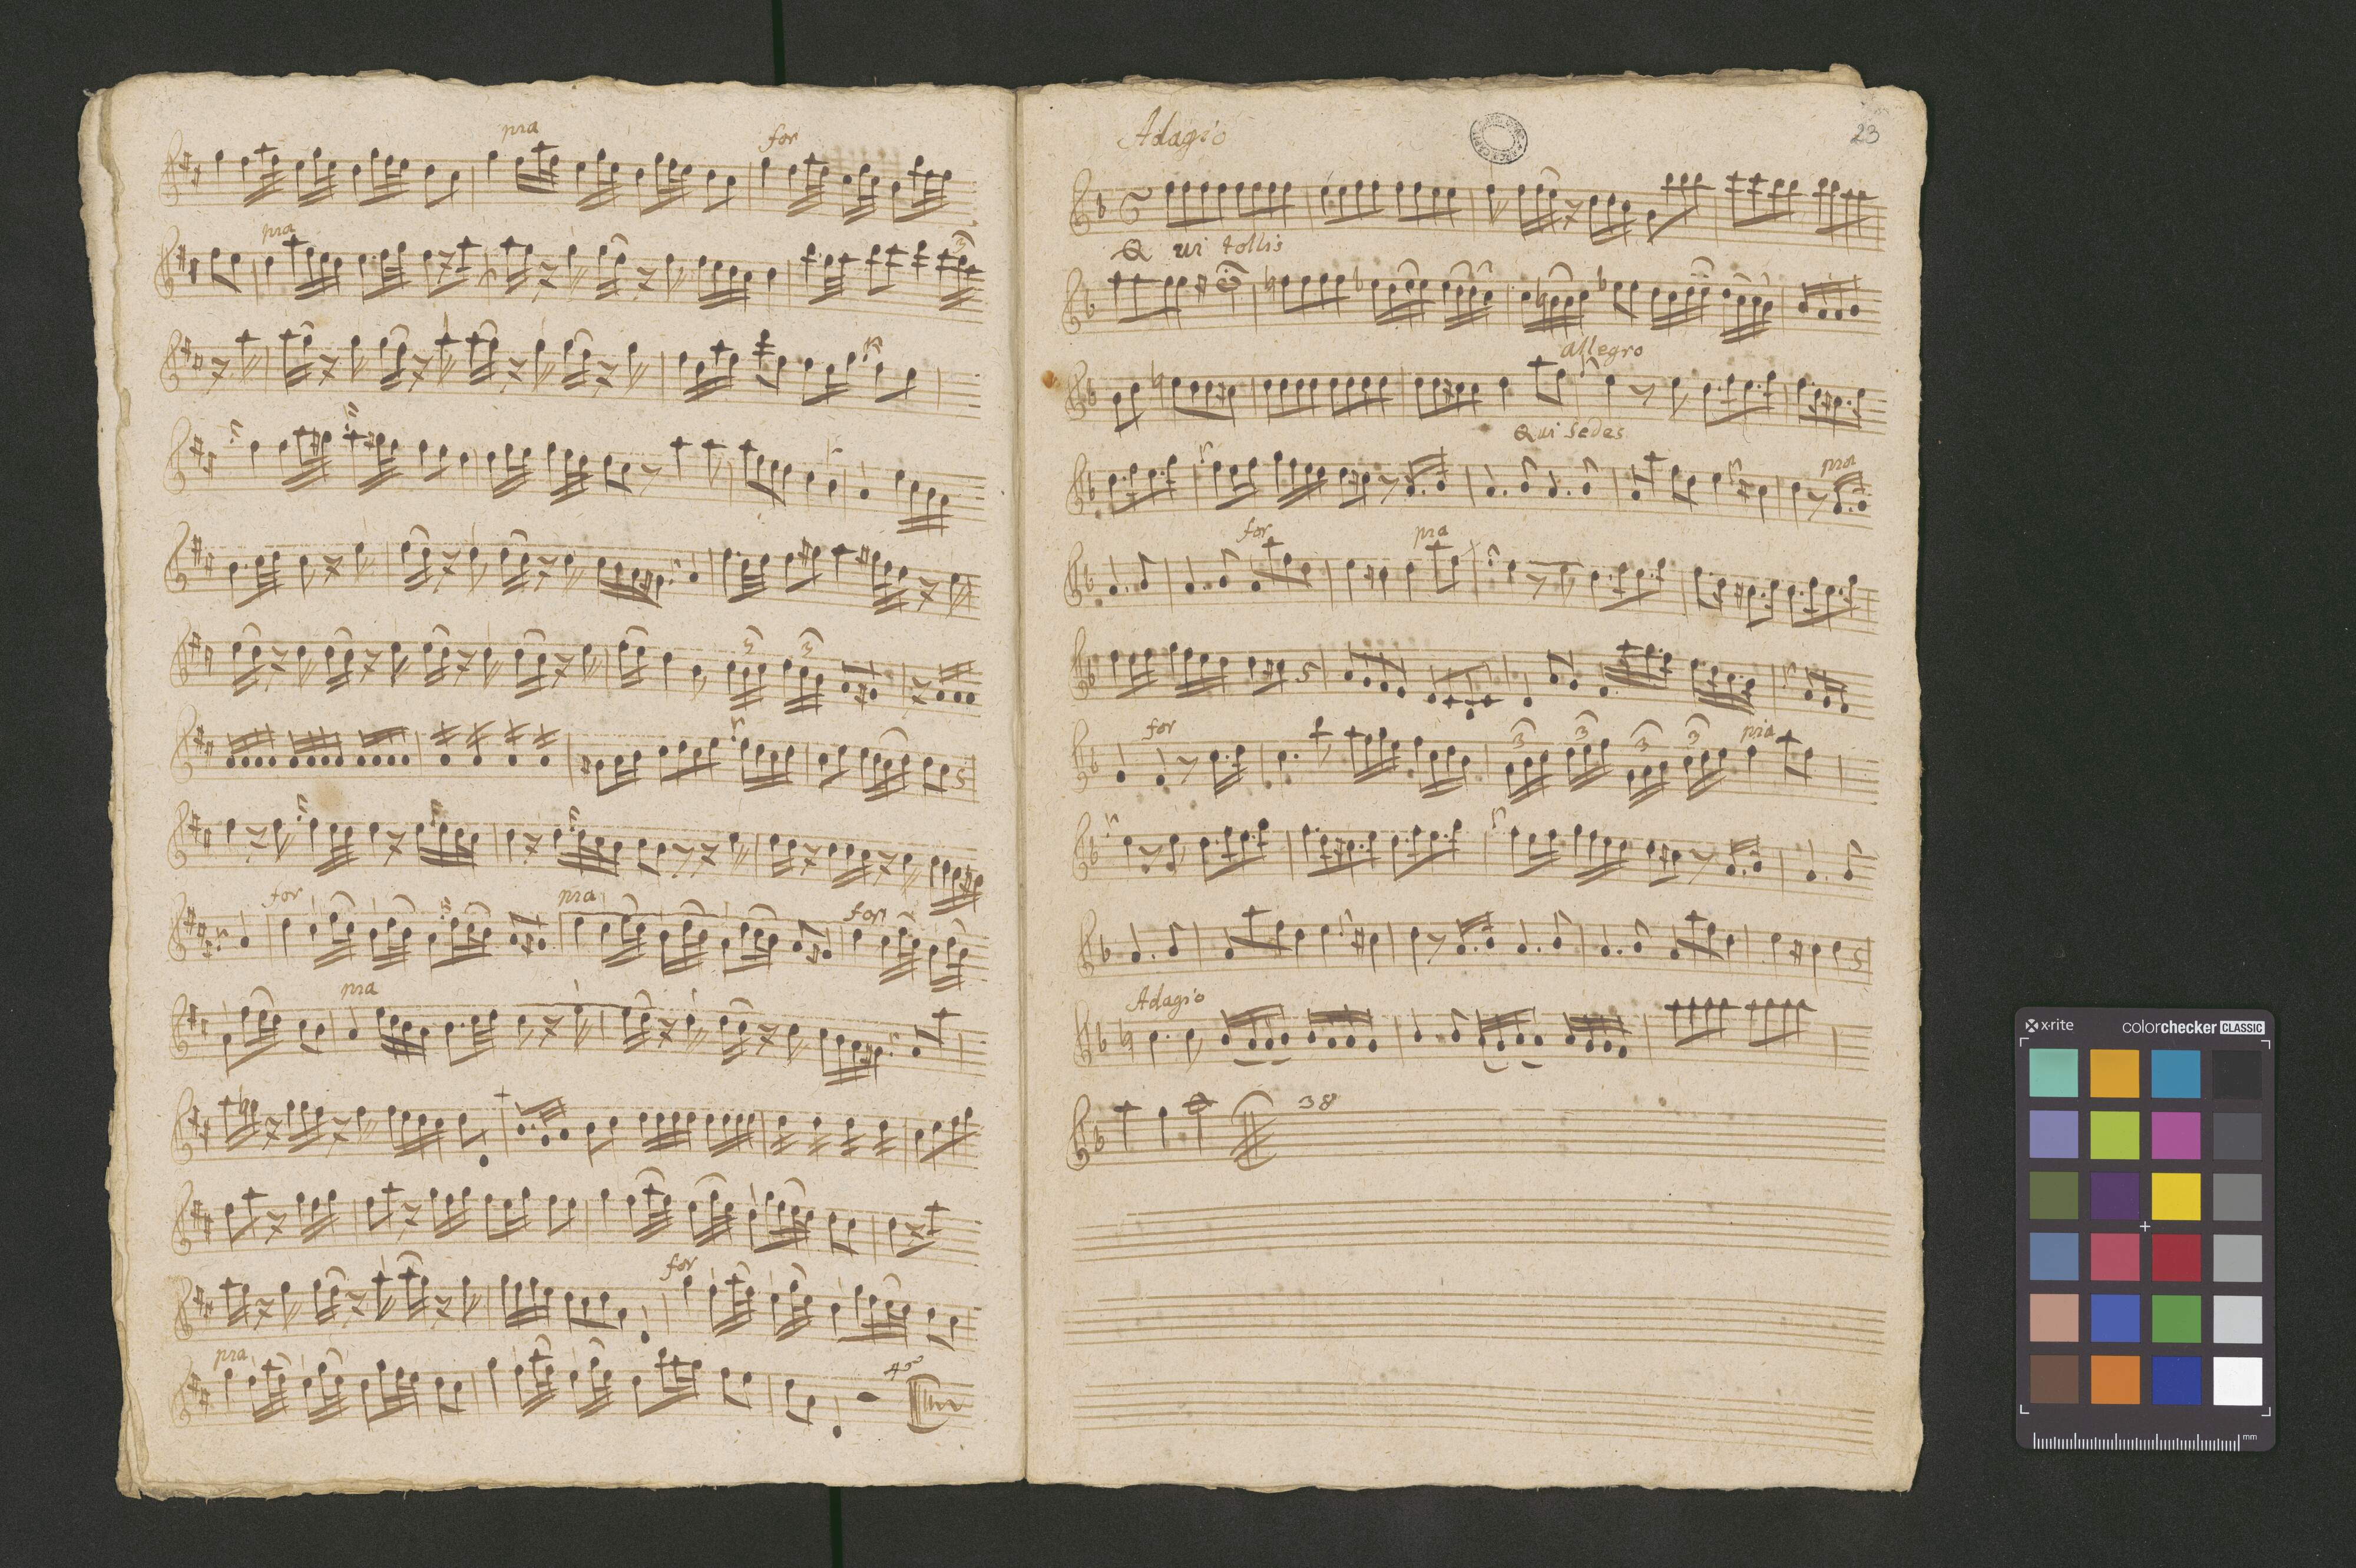 pia for
pia
3
3 3
for pia for
pia
for
pia
Adagio
23
Qui tollis
allegro
Qui sedes
pia
for pia
for 3 3 3 3 pia
Adagio
38
x·rite colorchecker CLASSIC
mm